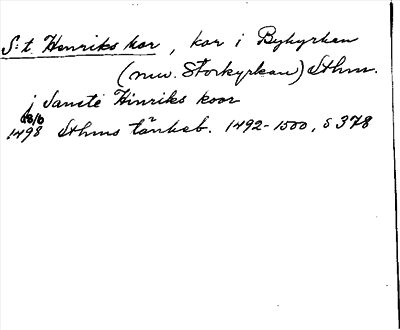 S:t. Henriks kor, kor i Bykyrkan
(nuv. Storkyrkan) Sthm.
j Sancte Hinriks koor
18/6
1498 Sthms tänkeb. 1492-1500, s 378